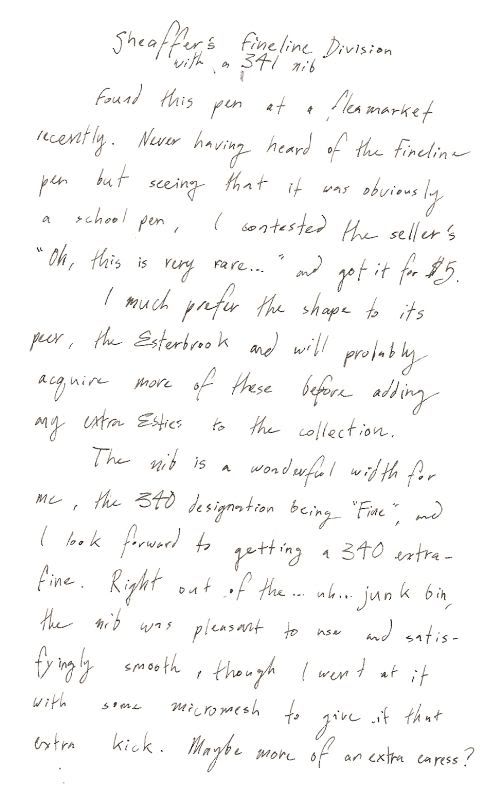 Sheaffer's Fineline Division
with a 341 nib
Found this pen at a fleamarket
recently. Never having heard of the Fineline
pen but seeing that it was obviously
a school pen, I contested the seller's
"Oh, this is very rare..." and got it for $5.
I much prefer the shape to its
peer, the Esterbrook and will probably
acquire more of these before adding
any extra Esties to the collection.
The nib is a wonderful width for
me, the 340 designation being "Fine", and
I look forward to getting a 340 extra-
fine. Right out of the... uh... junk bin,
the nib was pleasant to use and satis-
fyingly smooth, though I went at it
with some micromesh to give it that
extra kick. Maybe more of an extra caress?